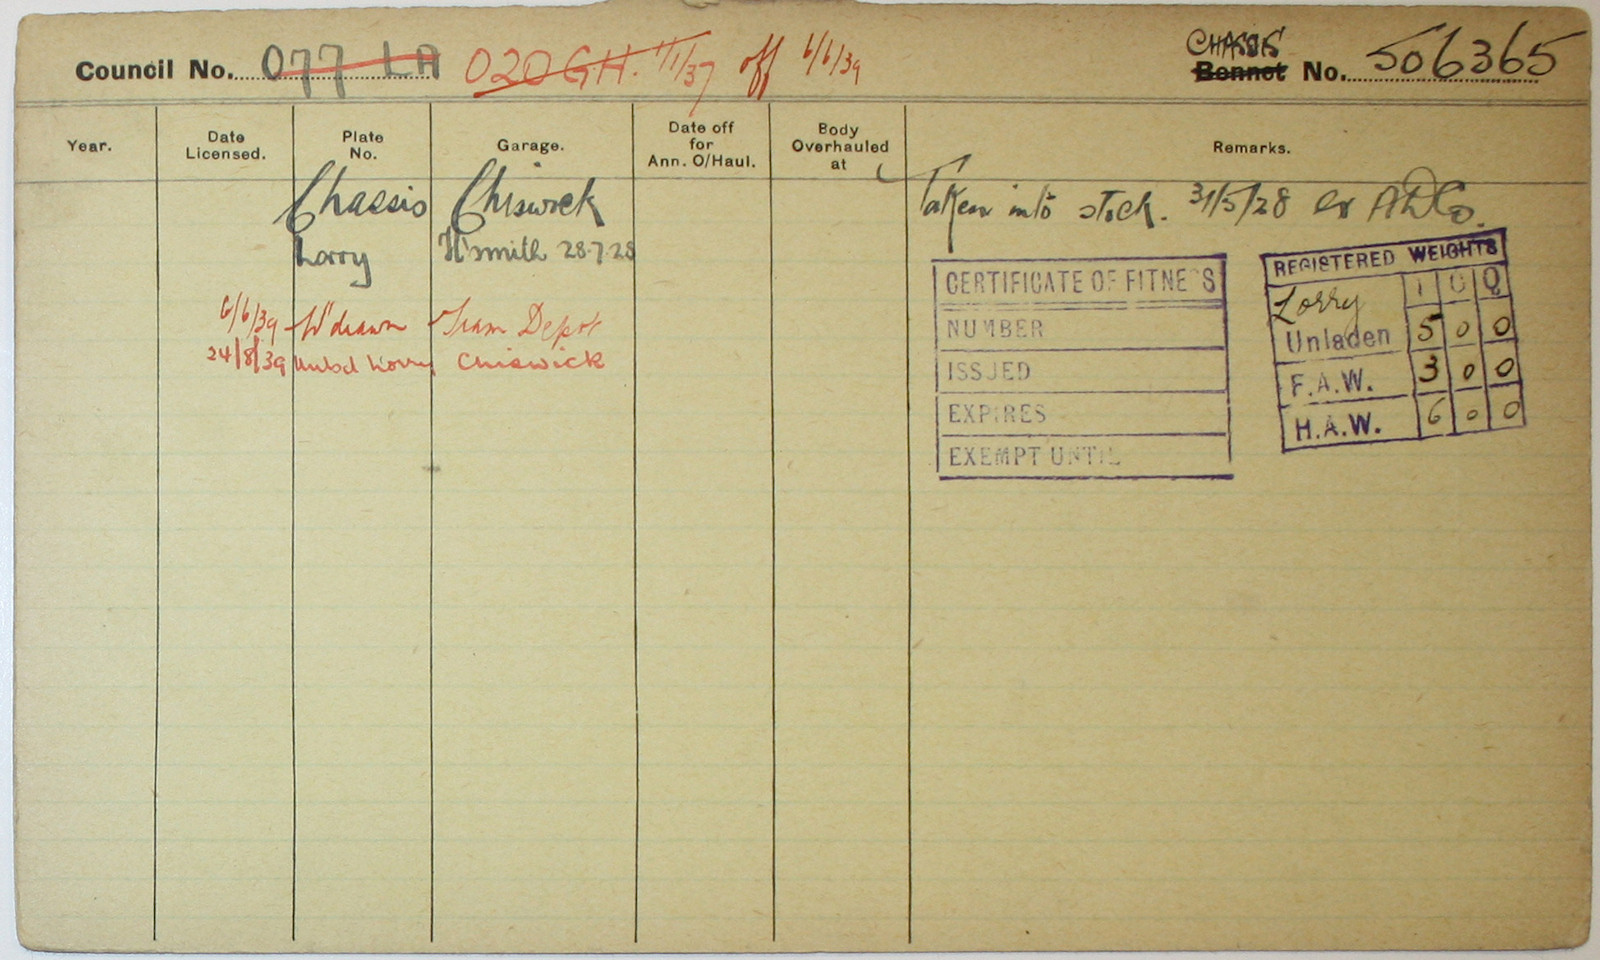 Council No. 077 LA 020 GH. 1/1/37 off 6/6/39 CHASSIS Bonnet No. 506365
Year. Date Licensed. Plate No. Garage. Date off for Ann. O/Haul. Body Overhauled at Remarks.
Chassis Chiswick Taken into stock. 31/5/28 ex ADCo.
Lorry H'smith 28.7.28
6/6/39 W'drawn Tram Depot
24/8/39 Lorry Chiswick
CERTIFICATE OF FITNESS
NUMBER
ISSUED
EXPIRES
EXEMPT UNTIL
REGISTERED WEIGHTS
Lorry T C Q
Unladen 5 0 0
F.A.W. 3 0 0
H.A.W. 6 0 0